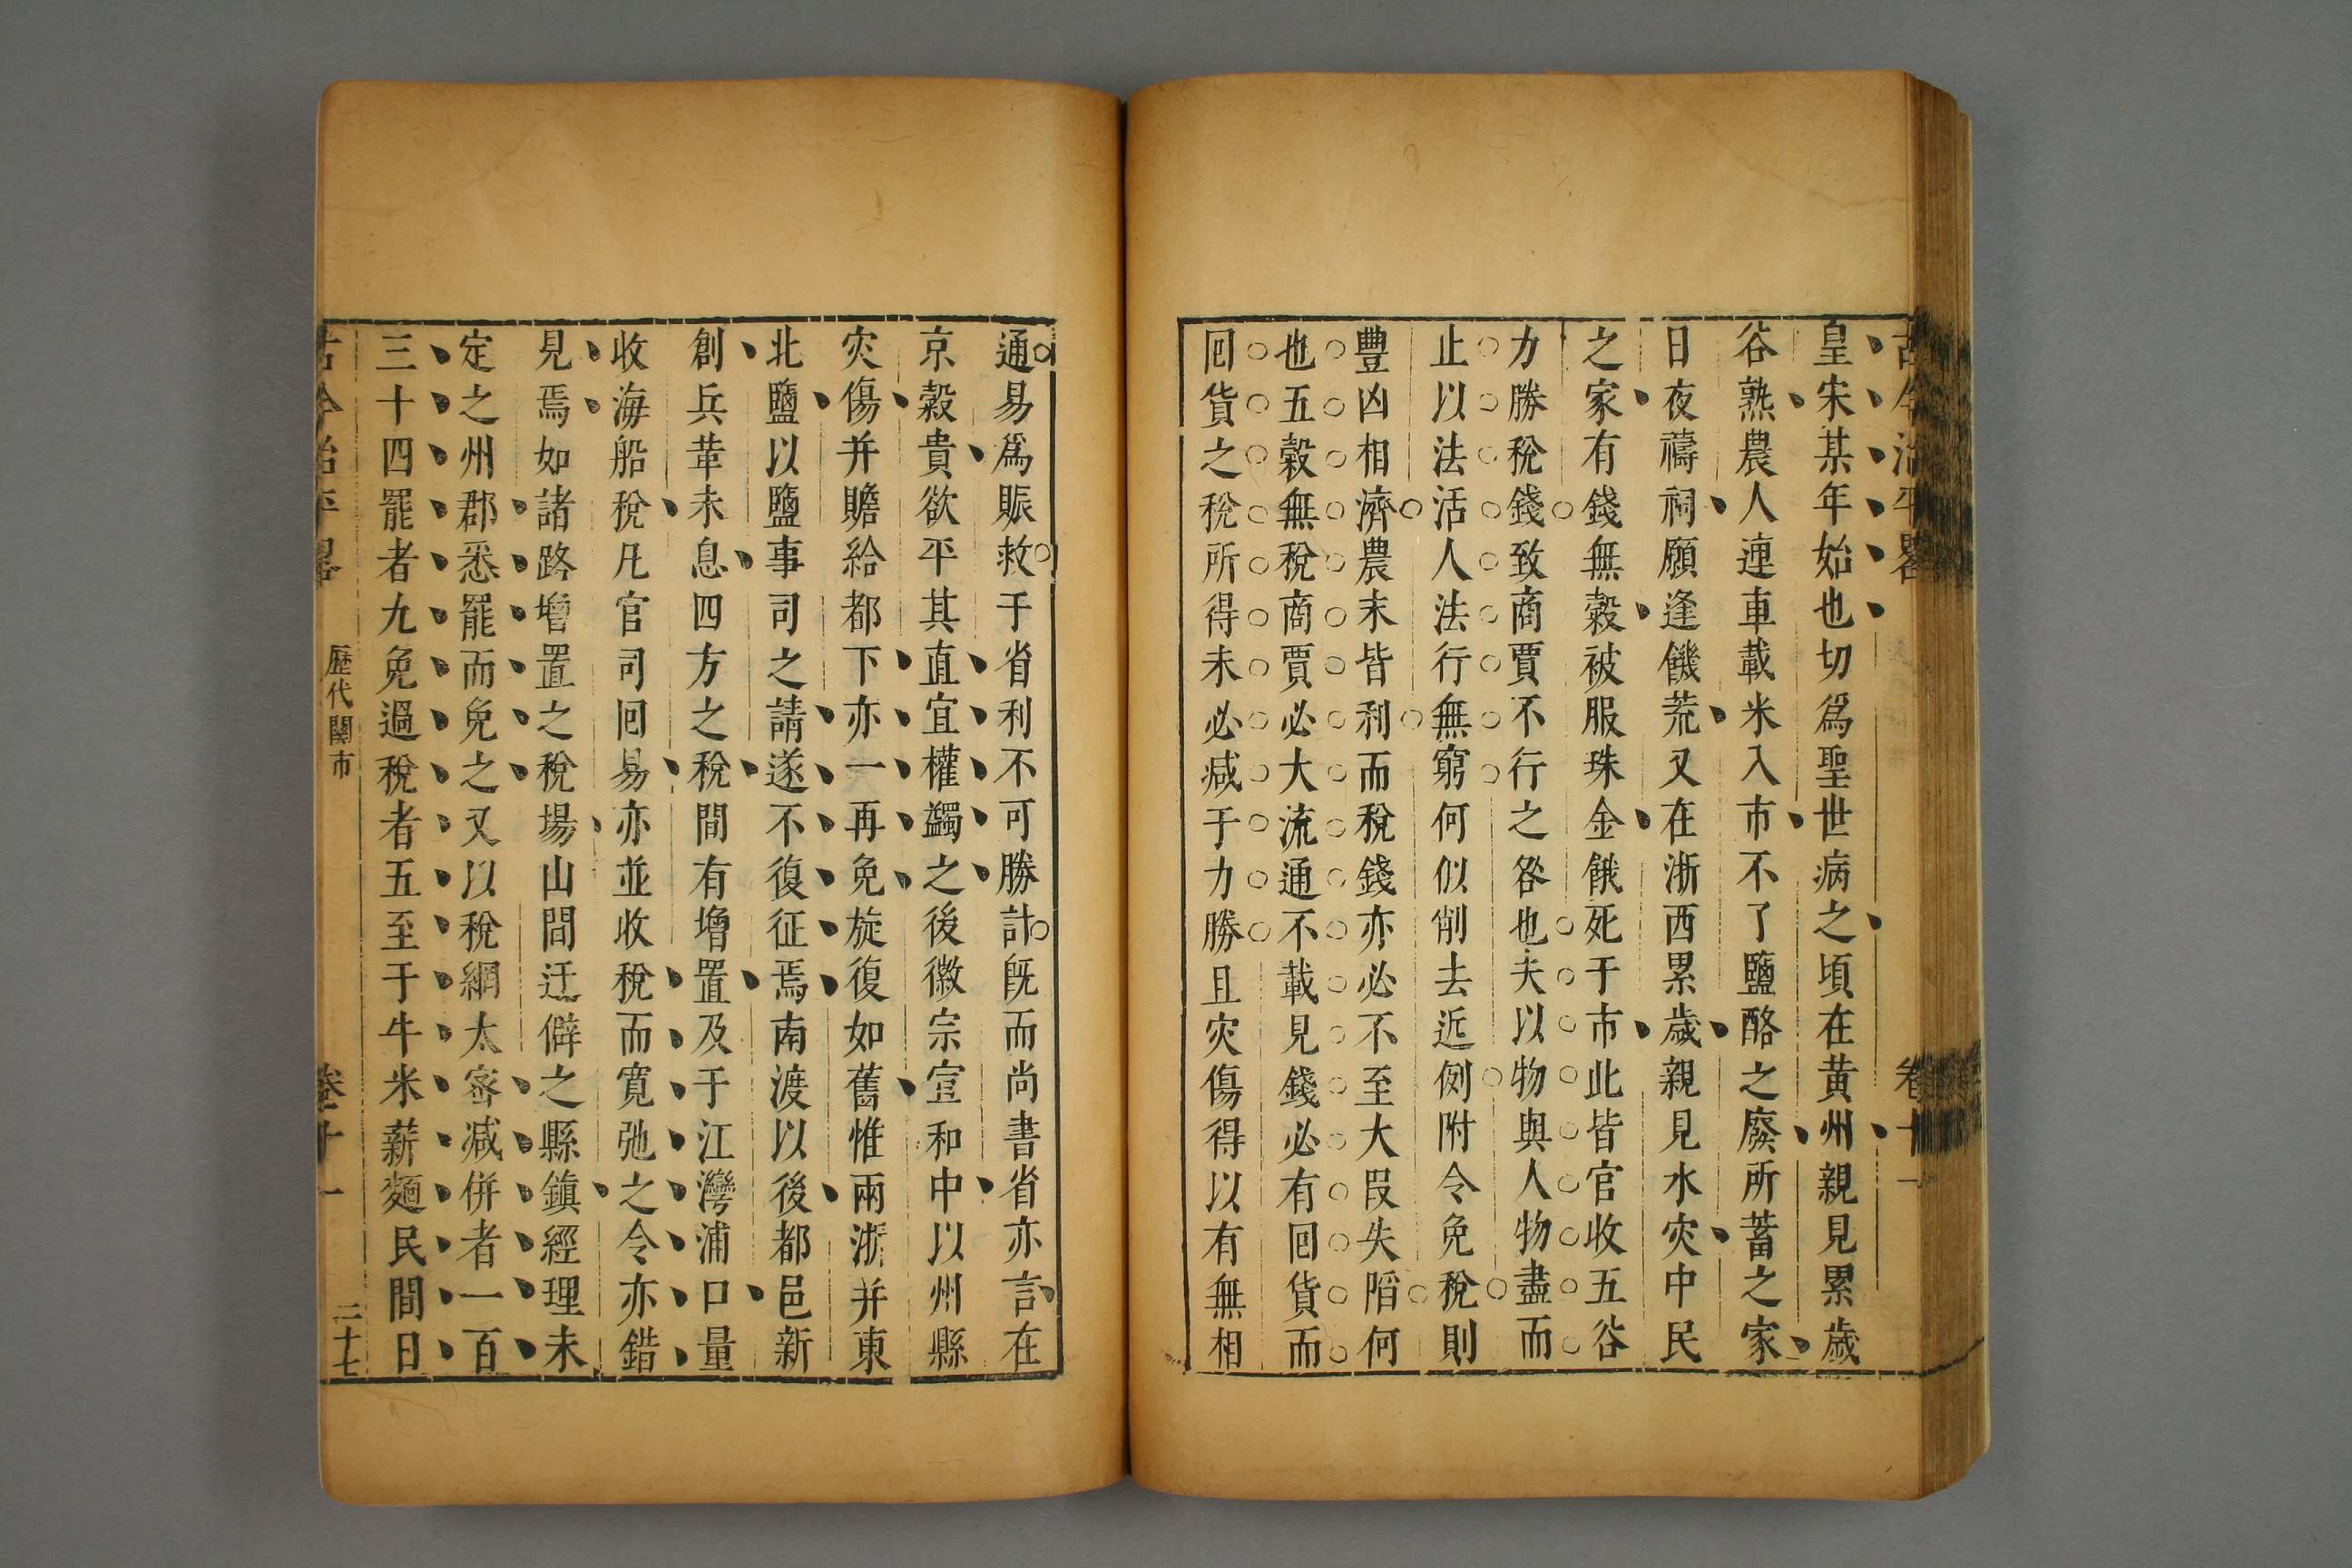 古今治平畧
卷十一
皇宋某年始也切爲聖世病之頃在黃州親見累歲
谷熟農人連車載米入市不了鹽酪之廢所蓄之家
日夜禱祠願逢饑荒又在浙西累歲親見水灾中民
之家有錢無穀被服珠金餓死于市此皆官收五谷
力勝稅錢致商賈不行之咎也夫以物與人物盡而
止以法活人法行無窮何似削去近例附令免稅則
豐凶相濟農末皆利而稅錢亦必不至大叚失䧟何
也五穀無稅商賈必大流通不載見錢必有回貨而
囘貨之稅所得未必减于力勝且灾傷得以有無相
通易爲賑救于省利不可勝計旣而尚書省亦言在
京穀貴欲平其直宜權蠲之後徽宗宣和中以州縣
灾傷并贍給都下亦一再免旋復如舊惟兩浙并東
北鹽以鹽事司之請遂不復征焉南渡以後都邑新
創兵革未息四方之稅間有增置及于江灣浦口量
收海船稅凡官司囘易亦並收稅而寬弛之令亦錯
見焉如諸路增置之稅場山間迂僻之縣鎮經理未
定之州郡悉罷而免之又以稅網太密减併者一百
三十四罷者九免過稅者五至于牛米薪麵民間日
古今治平畧
歷代關市
卷十一
三十七